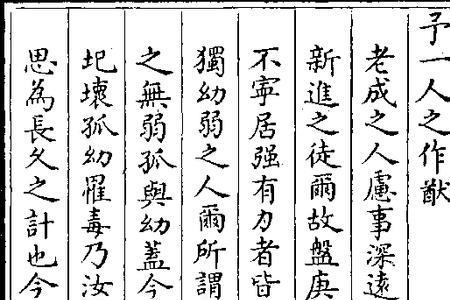 予一人之作猷
老成之人慮事深遠
新進之徒爾故盤庚
不寜居强有力者皆
獨幼弱之人爾所謂
之無弱孤與幼蓋今
圯壞孤幼罹毒乃汝
思為長久之計也今